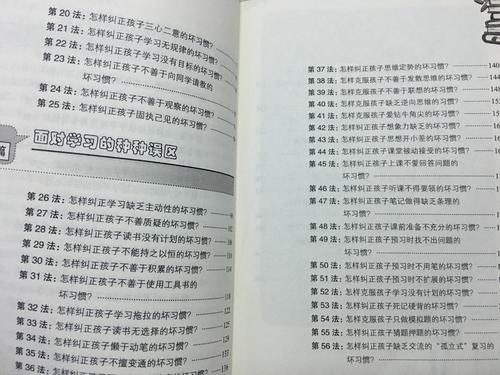 第 20 法：怎样纠正孩子三心二意的坏习惯？
第 21 法：怎样纠正孩子学习无规律的坏习惯？
第 22 法：怎样纠正孩子学习没有目标的坏习惯？
第 23 法：怎样纠正孩子不善于向同学请教的
坏习惯？
第 24 法：怎样纠正孩子不善于观察的坏习惯？
第 25 法：怎样纠正孩子固执己见的坏习惯？
篇
面对学习的种种误区
第 26 法：怎样纠正学习缺乏主动性的坏习惯？
第 27 法：怎样纠正孩子不善质疑的坏习惯？ 102
第 28 法：怎样纠正孩子读书没有计划的坏习惯？
第 29 法：怎样纠正孩子不能持之以恒的坏习惯？
第 30 法：怎样纠正孩子不善于积累的坏习惯？
第 31 法：怎样纠正孩子不善于使用工具书的
坏习惯？ 118
第 32 法：怎样纠正孩子学习拖拉的坏习惯？ 122
第 33 法：怎样纠正孩子读书无选择的坏习惯？ 125
第 34 法：怎样纠正孩子懒于动笔的坏习惯？ 129
第 35 法：怎样纠正孩子不擅变通的坏习惯？
第 36 法：怎样纠正孩子 的坏习惯？
第 37 法：怎样纠正孩子思维定势的坏习惯？ 140
第 38 法：怎样克服孩子不善于发散思维的坏习惯？
第 39 法：怎样克服孩子不善于联想的坏习惯？
第 40 法：怎样克服孩子缺乏逆向思维的习惯？
第 41 法：怎样克服孩子爱钻牛角尖的坏习惯？
第 42 法：怎样纠正孩子想象力缺乏的坏习惯？
第 43 法：怎样纠正孩子思想开小差的坏习惯？
第 44 法：怎样纠正孩子课堂被动接受的坏习惯？
第 45 法：怎样纠正孩子上课不爱回答问题的
坏习惯？
第 46 法：怎样纠正孩子听课不得要领的坏习惯？
第 47 法：怎样纠正孩子笔记做得缺乏条理的
坏习惯？
第 48 法：怎样纠正孩子课前准备不充分的坏习惯？
第 49 法：怎样纠正孩子预习时找不出问题的
坏习惯？
第 50 法：怎样纠正孩子预习时不用笔的坏习惯？
第 51 法：怎样纠正孩子预习时不扩展的坏习惯？
第 52 法：怎样克服孩子学习没有计划的坏习惯？
第 53 法：怎样纠正孩子死记硬背的坏习惯？
第 54 法：怎样克服孩子只做模拟题的坏习惯？
第 55 法：怎样纠正孩子猜题押题的坏习惯？
第 56 法：怎样纠正孩子缺乏交流的“孤立式”复习的
坏习惯？